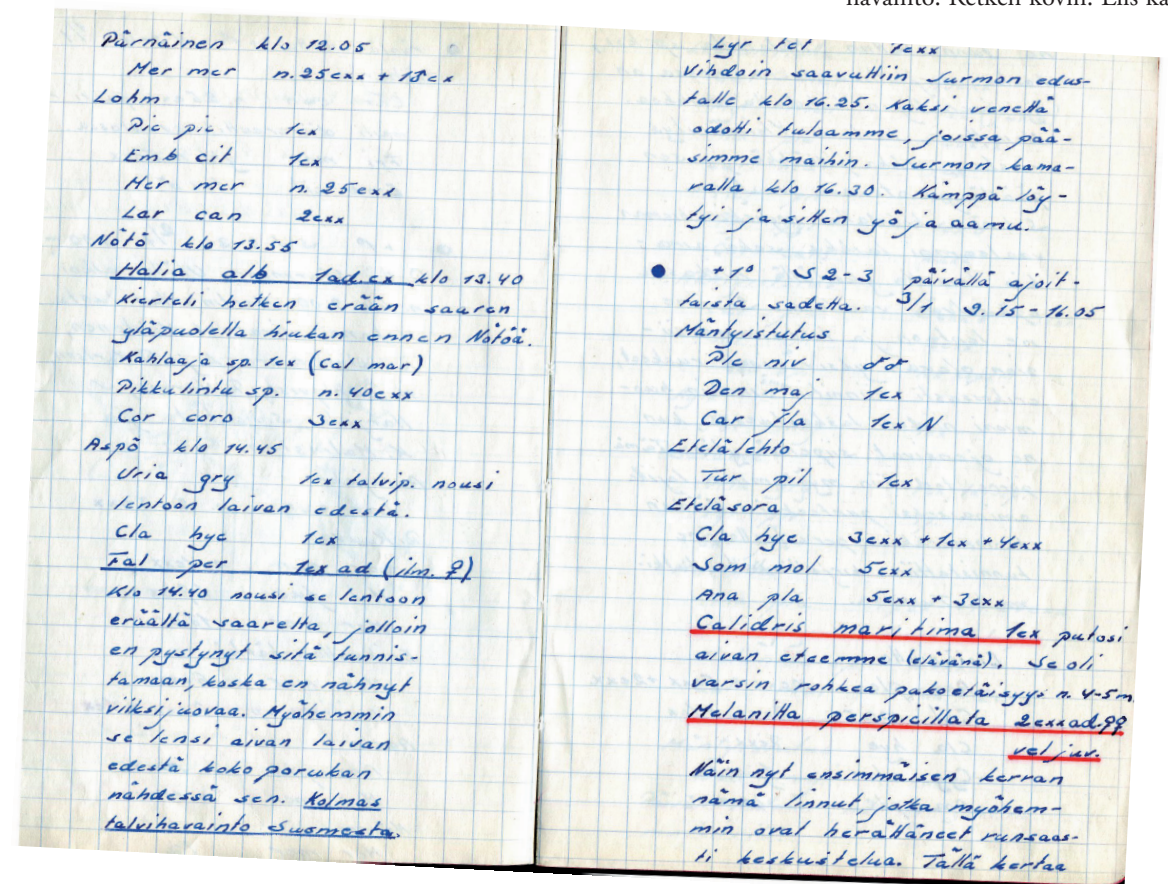 havainto. Retken kovin. Eils ka
Pärnäinen klo 12.05
Mer mer n. 25exx + 15ex
Lohm
Pic pic 1ex
Emb cit 1ex
Mer mer n. 25exx
Lar can 2exx
Nötö klo 13.55
Halia alb 1ad.ex klo 13.40
Kierteli hetken erään saaren
yläpuolella hiukan ennen Nötöä.
Kahlaaja sp. 1ex (Cal mar)
Pikkulintu sp. n. 40exx
Cor coro 3exx
Aspö klo 14.45
Uria gry 1ex talvip. nousi
lentoon laivan edestä.
Cla hye 1ex
Fal per 1ex ad (ilm. ♀)
Klo 14.40 nousi se lentoon
eräältä saarelta, jolloin
en pystynyt sitä tunnis-
tamaan, koska en nähnyt
viiksijuovaa. Myöhemmin
se lensi aivan laivan
edestä koko porukan
nähdessä sen. Kolmas
talvihavainto Suomesta.
Lyr tet 1exx
Vihdoin saavuttiin Jurmon edus-
talle klo 16.25. Kaksi venettä
odotti tuloamme, joissa pää-
simme maihin. Jurmon kama-
ralla klo 16.30. Kämppä löy-
tyi ja sitten yö ja aamu.
● +1° S 2-3 päivällä ajoit-
taista sadetta. 3/1 9.15-16.05
Mäntyistutus
Ple niv ♂♂
Den maj 1ex
Car fla 1ex N
Etelälehto
Tur pil 1ex
Eteläsora
Cla hye 3exx + 1ex + 4exx
Som mol 5exx
Ana pla 5exx + 3exx
Calidris maritima 1ex putosi
aivan eteemme (elävänä). Se oli
varsin rohkea pakoetäisyys n. 4-5m
Melanitta perspicillata 2exxad.♀♀
vel juv.
Näin nyt ensimmäisen kerran
nämä linnut, jotka myöhem-
min ovat herättäneet runsaas-
ti keskustelua. Tällä kertaa